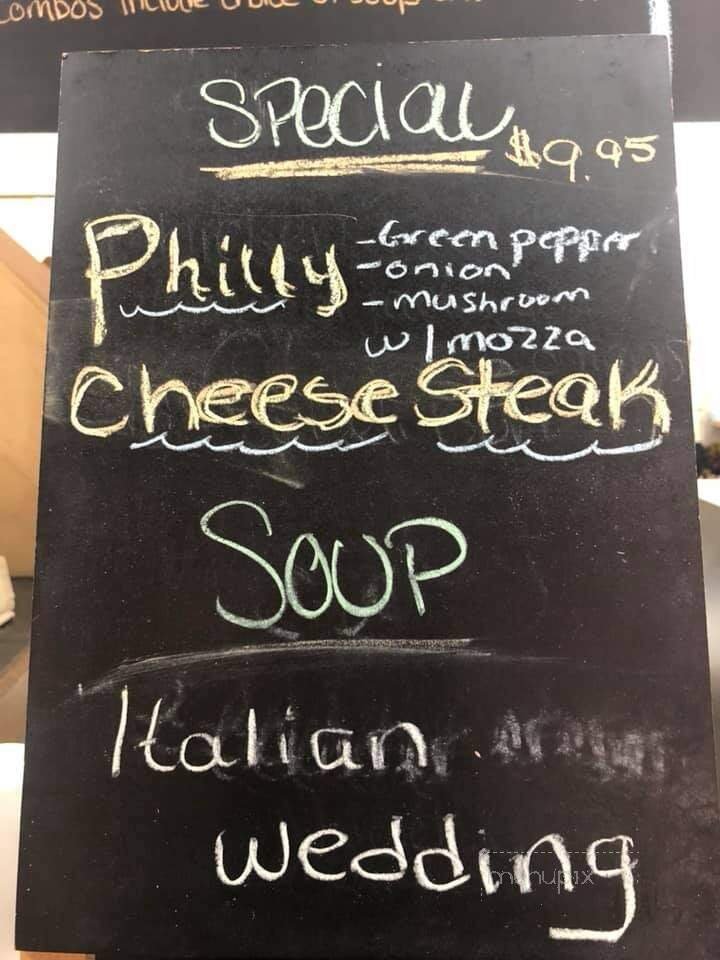 Combos include choice of soup
Special
$9.95
Philly
-Green pepper
-onion
-mushroom
w/mozza
Cheese Steak
Soup
Italian
Wedding
menupix